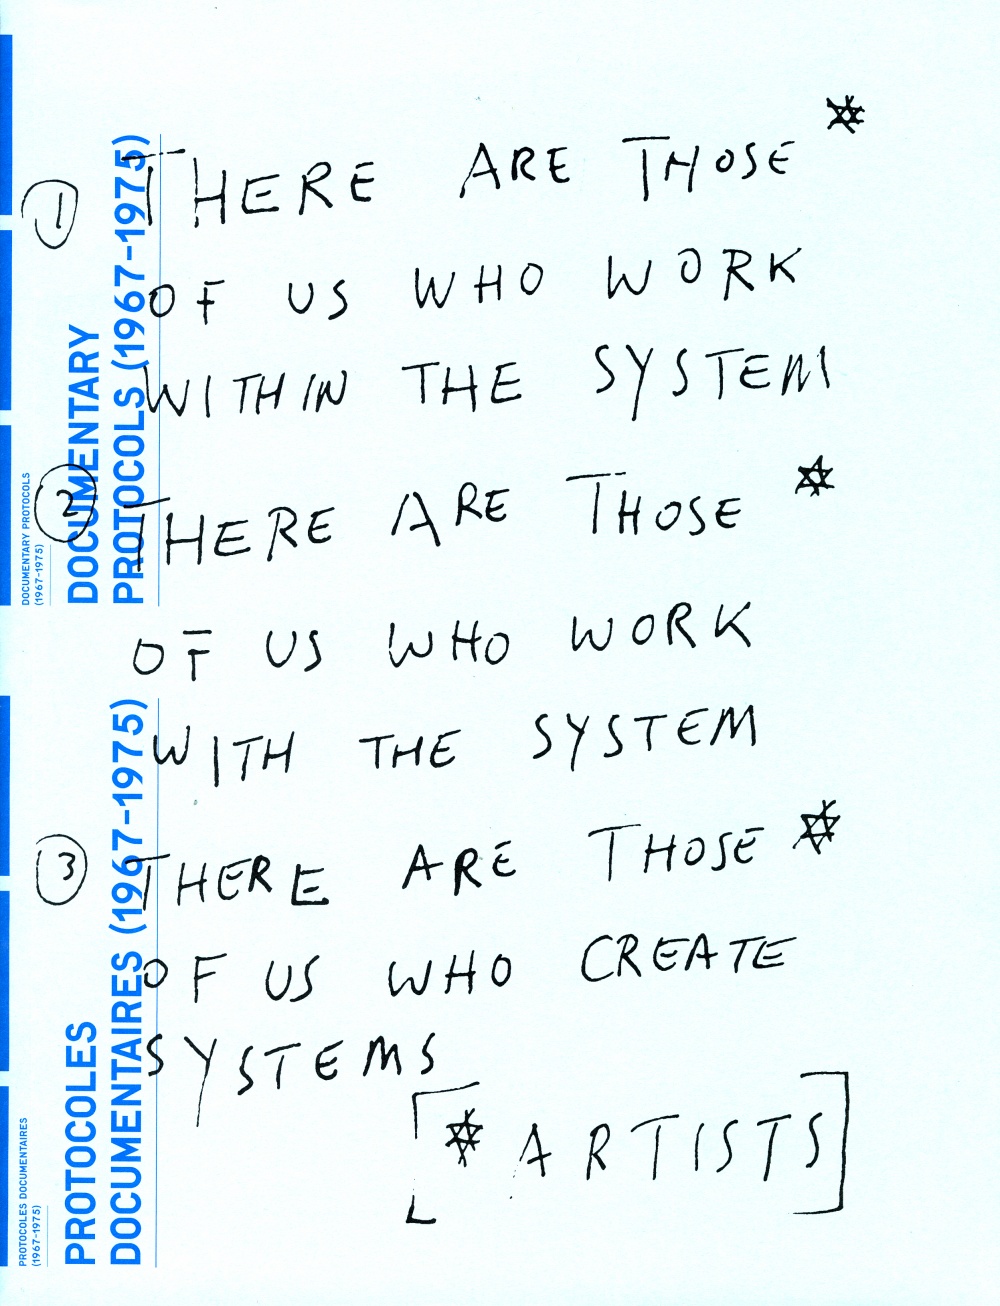 ① THERE ARE THOSE *
OF US WHO WORK
WITHIN THE SYSTEM
② THERE ARE THOSE *
OF US WHO WORK
WITH THE SYSTEM
③ THERE ARE THOSE *
OF US WHO CREATE
SYSTEMS
[* ARTISTS]
DOCUMENTARY PROTOCOLS
(1967-1975)
DOCUMENTARY
PROTOCOLS (1967-1975)
PROTOCOLES DOCUMENTAIRES
(1967-1975)
PROTOCOLES
DOCUMENTAIRES (1967-1975)